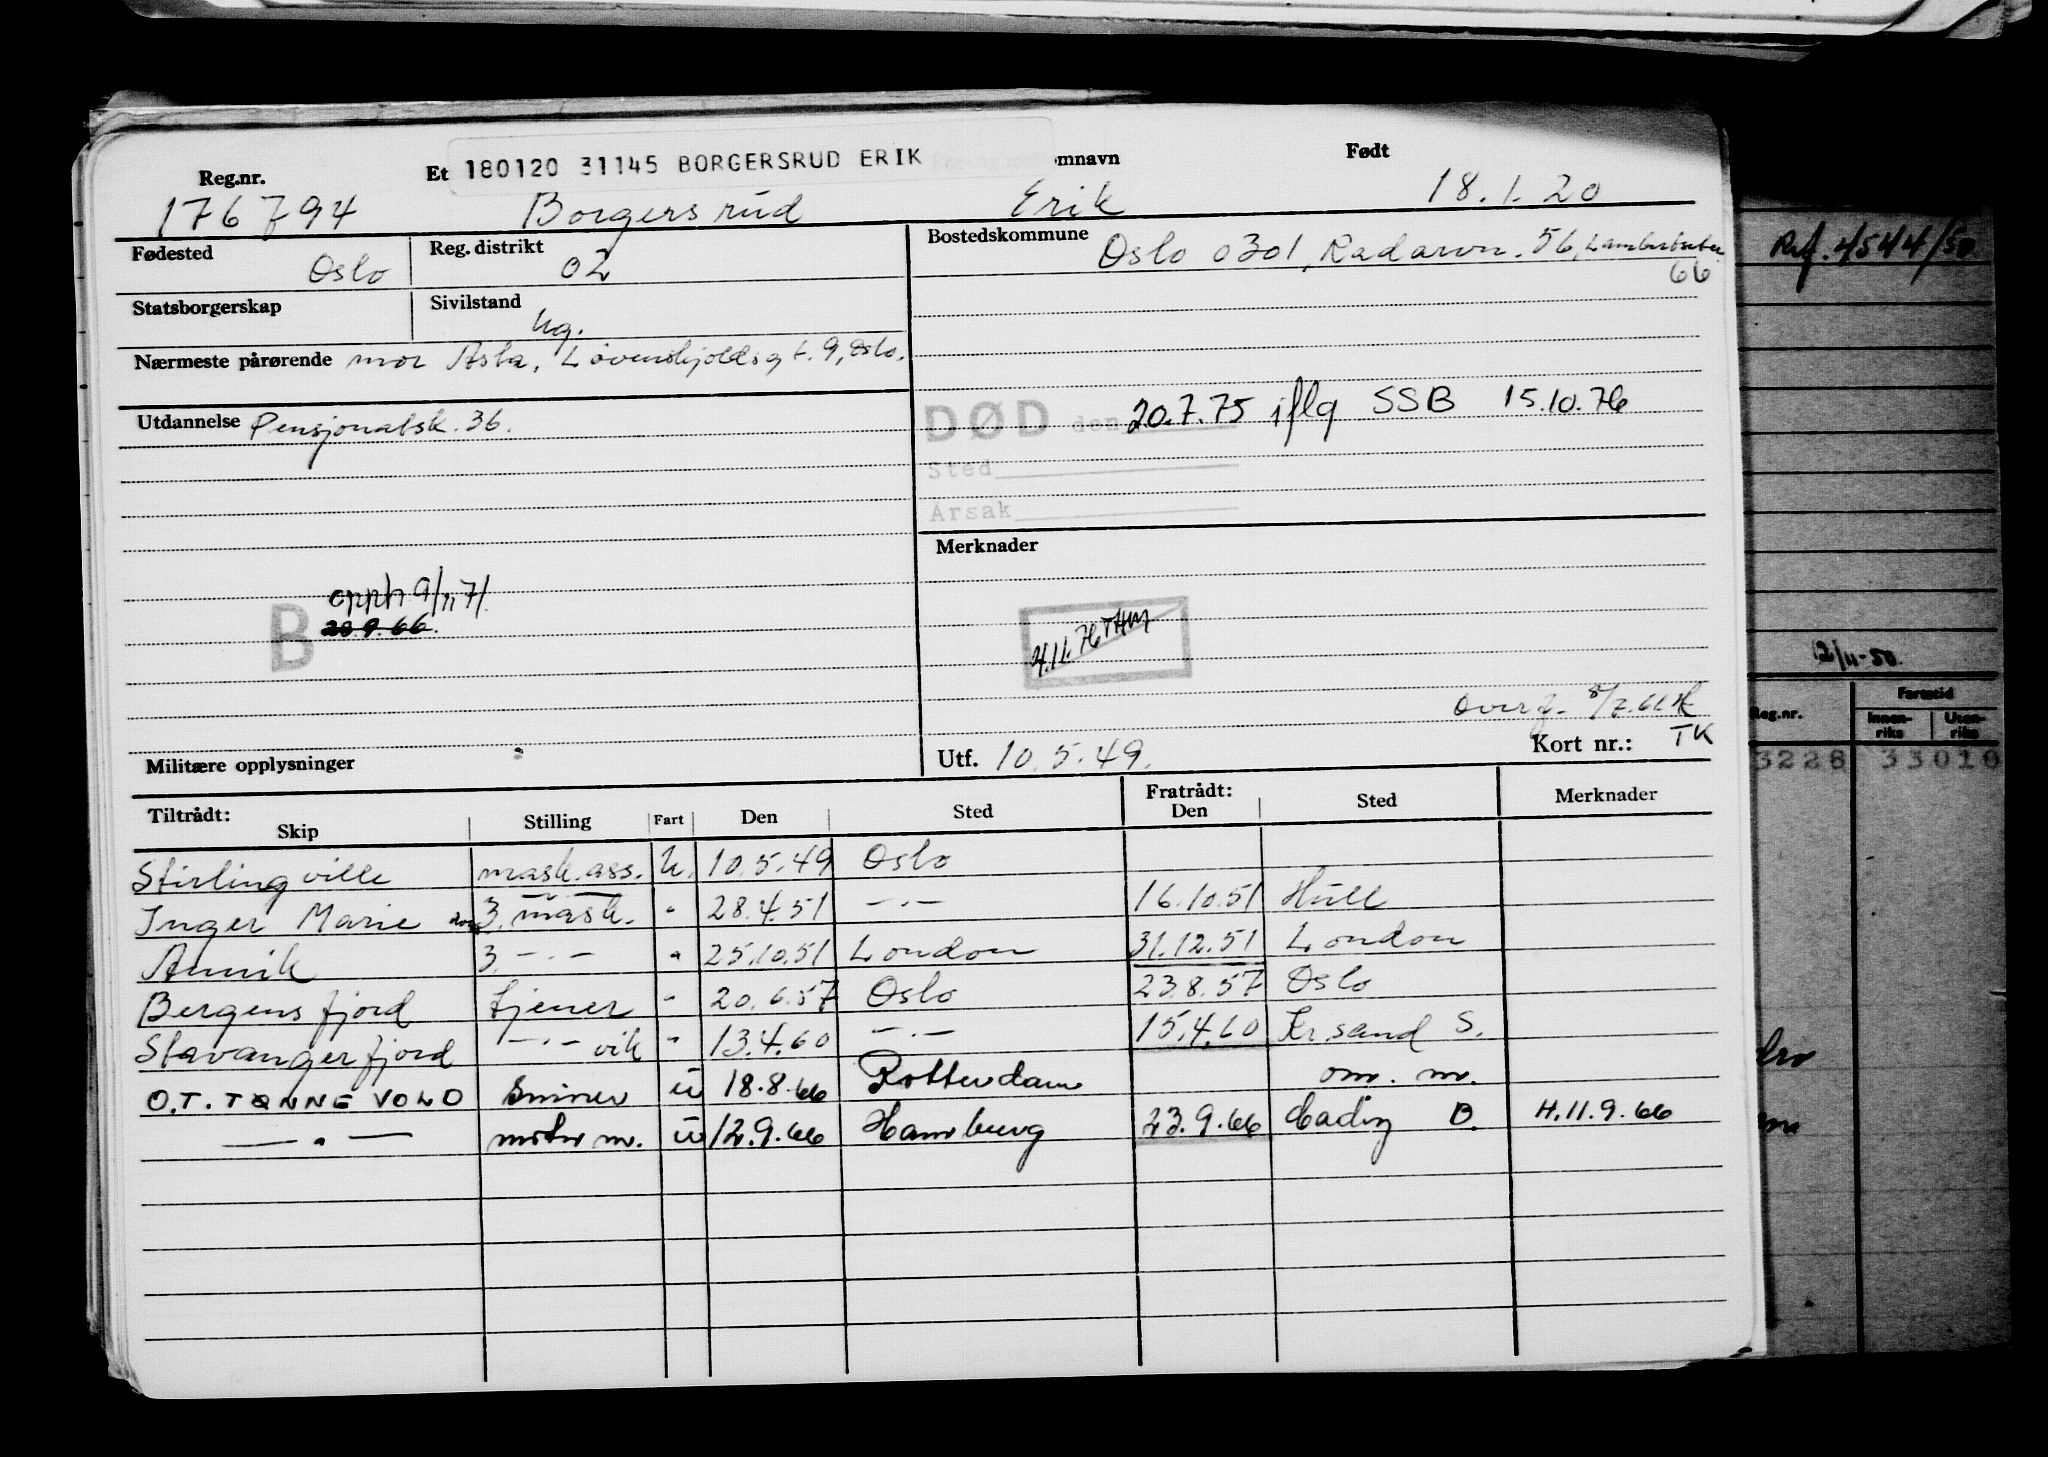 Reg.nr. Et 180120 31145 BORGERSRUD ERIK omnavn Født
176794 Borgersrud Erik 18.1.20
Fødested Oslo Reg. distrikt 02 Bostedskommune Oslo 0301, Radarvn. 56, Lambertseter
66
Statsborgerskap Sivilstand Ug.
Nærmeste pårørende mor Asta, Løvenskjoldsgt. 9, Oslo.
Utdannelse Pensjonatsk. 36.
DØD den 20.7.75 iflg SSB 15.10.76
Sted
Årsak
Merknader
B opph 9/11 71
20.9.66.
4.11.76 THM
Overf. 8/7.61
Militære opplysninger Utf. 10.5.49. Kort nr.: TK
Tiltrådt: Skip Stilling Fart Den Sted Fratrådt: Den Sted Merknader
Stirlingville mask.ass. U. 10.5.49 Oslo
Inger Marie 3. mask. " 28.4.51 -"- 16.10.51 Hull
Annik 3. -"- " 25.10.51 London 31.12.51 London
Bergensfjord tjener " 20.6.57 Oslo 23.8.57 Oslo
Stavangerfjord -"- vik " 13.4.60 -"- 15.4.60 Kr.sand S.
O.T. TØNNEVOLD Smører U 18.8.66 Rotterdam om. m.
-"- motorm. U 12.9.66 Hamburg 23.9.66 Cadiz D. H.11.9.66
Ref. 4544/50
12/11-50.
Reg.nr. Fartstid
Innenriks Utenriks
3228 33010